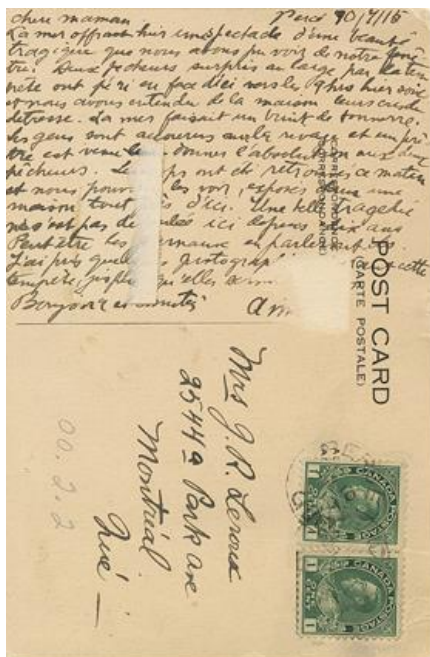 chere maman Percé 10/7/15
La mer offrait hier un spectacle d'une beauté
tragique que nous avons pu voir de notre fenê
tre. Deux pecheurs surpris au large par la tem
pete ont péri en face d'ici vers les hier soir
et nous avons entendu de la maison leurs cris de
detresse. La mer faisait un bruit de tonnerre.
les gens sont accourus sur le rivage et un prê
tre est venu donner l'absolution aux deux
pêcheurs. ps ont été retrouvés ce matin
et nous pouv les voir, exposés dans une
maison tout d'ici. Une telle tragedie
ne s'est pas de ulée ici depuis dix ans
Peut être les journaux en parleront ils.
J'ai pris quelq photograph cette
tempête, j'espère qu'elles
Bonjour et amitiés
(CORRESPONDANCE)
POST CARD
(CARTE POSTALE)
Mrs J. R. Leroux
2544a Park ave
Montréal
Qué —
00.2.2
CANADA POSTAGE
1 1
CANADA POSTAGE
1 1